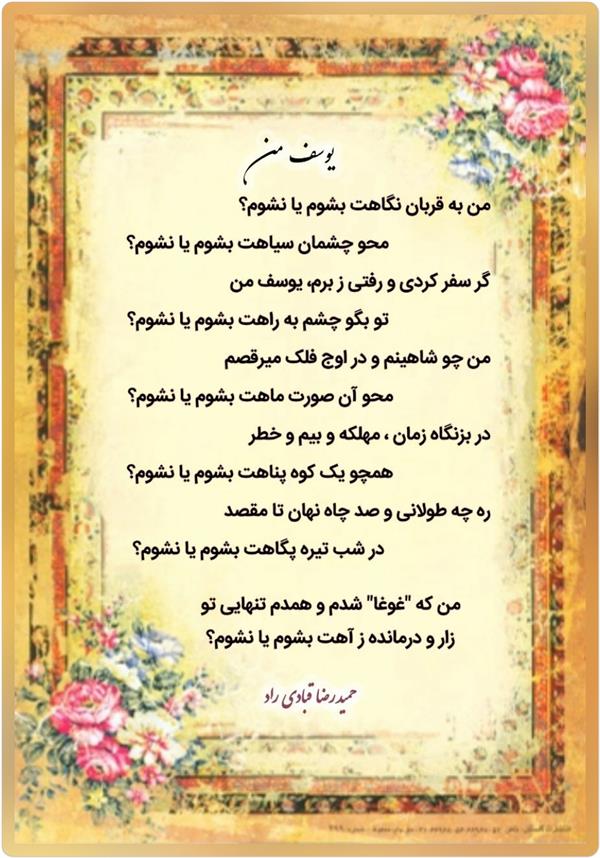 یوسف من
من به قربان نگاهت بشوم یا نشوم؟
محو چشمان سیاهت بشوم یا نشوم؟
گر سفر کردی و رفتی ز برم، یوسف من
تو بگو چشم به راهت بشوم یا نشوم؟
من چو شاهینم و در اوج فلک میرقصم
محو آن صورت ماهت بشوم یا نشوم؟
در بزنگاه زمان ، مهلکه و بیم و خطر
همچو یک کوه پناهت بشوم یا نشوم؟
ره چه طولانی و صد چاه نهان تا مقصد
در شب تیره پگاهت بشوم یا نشوم؟
من که "غوغا" شدم و همدم تنهایی تو
زار و درمانده ز آهت بشوم یا نشوم؟
حمیدرضا قبادی راد